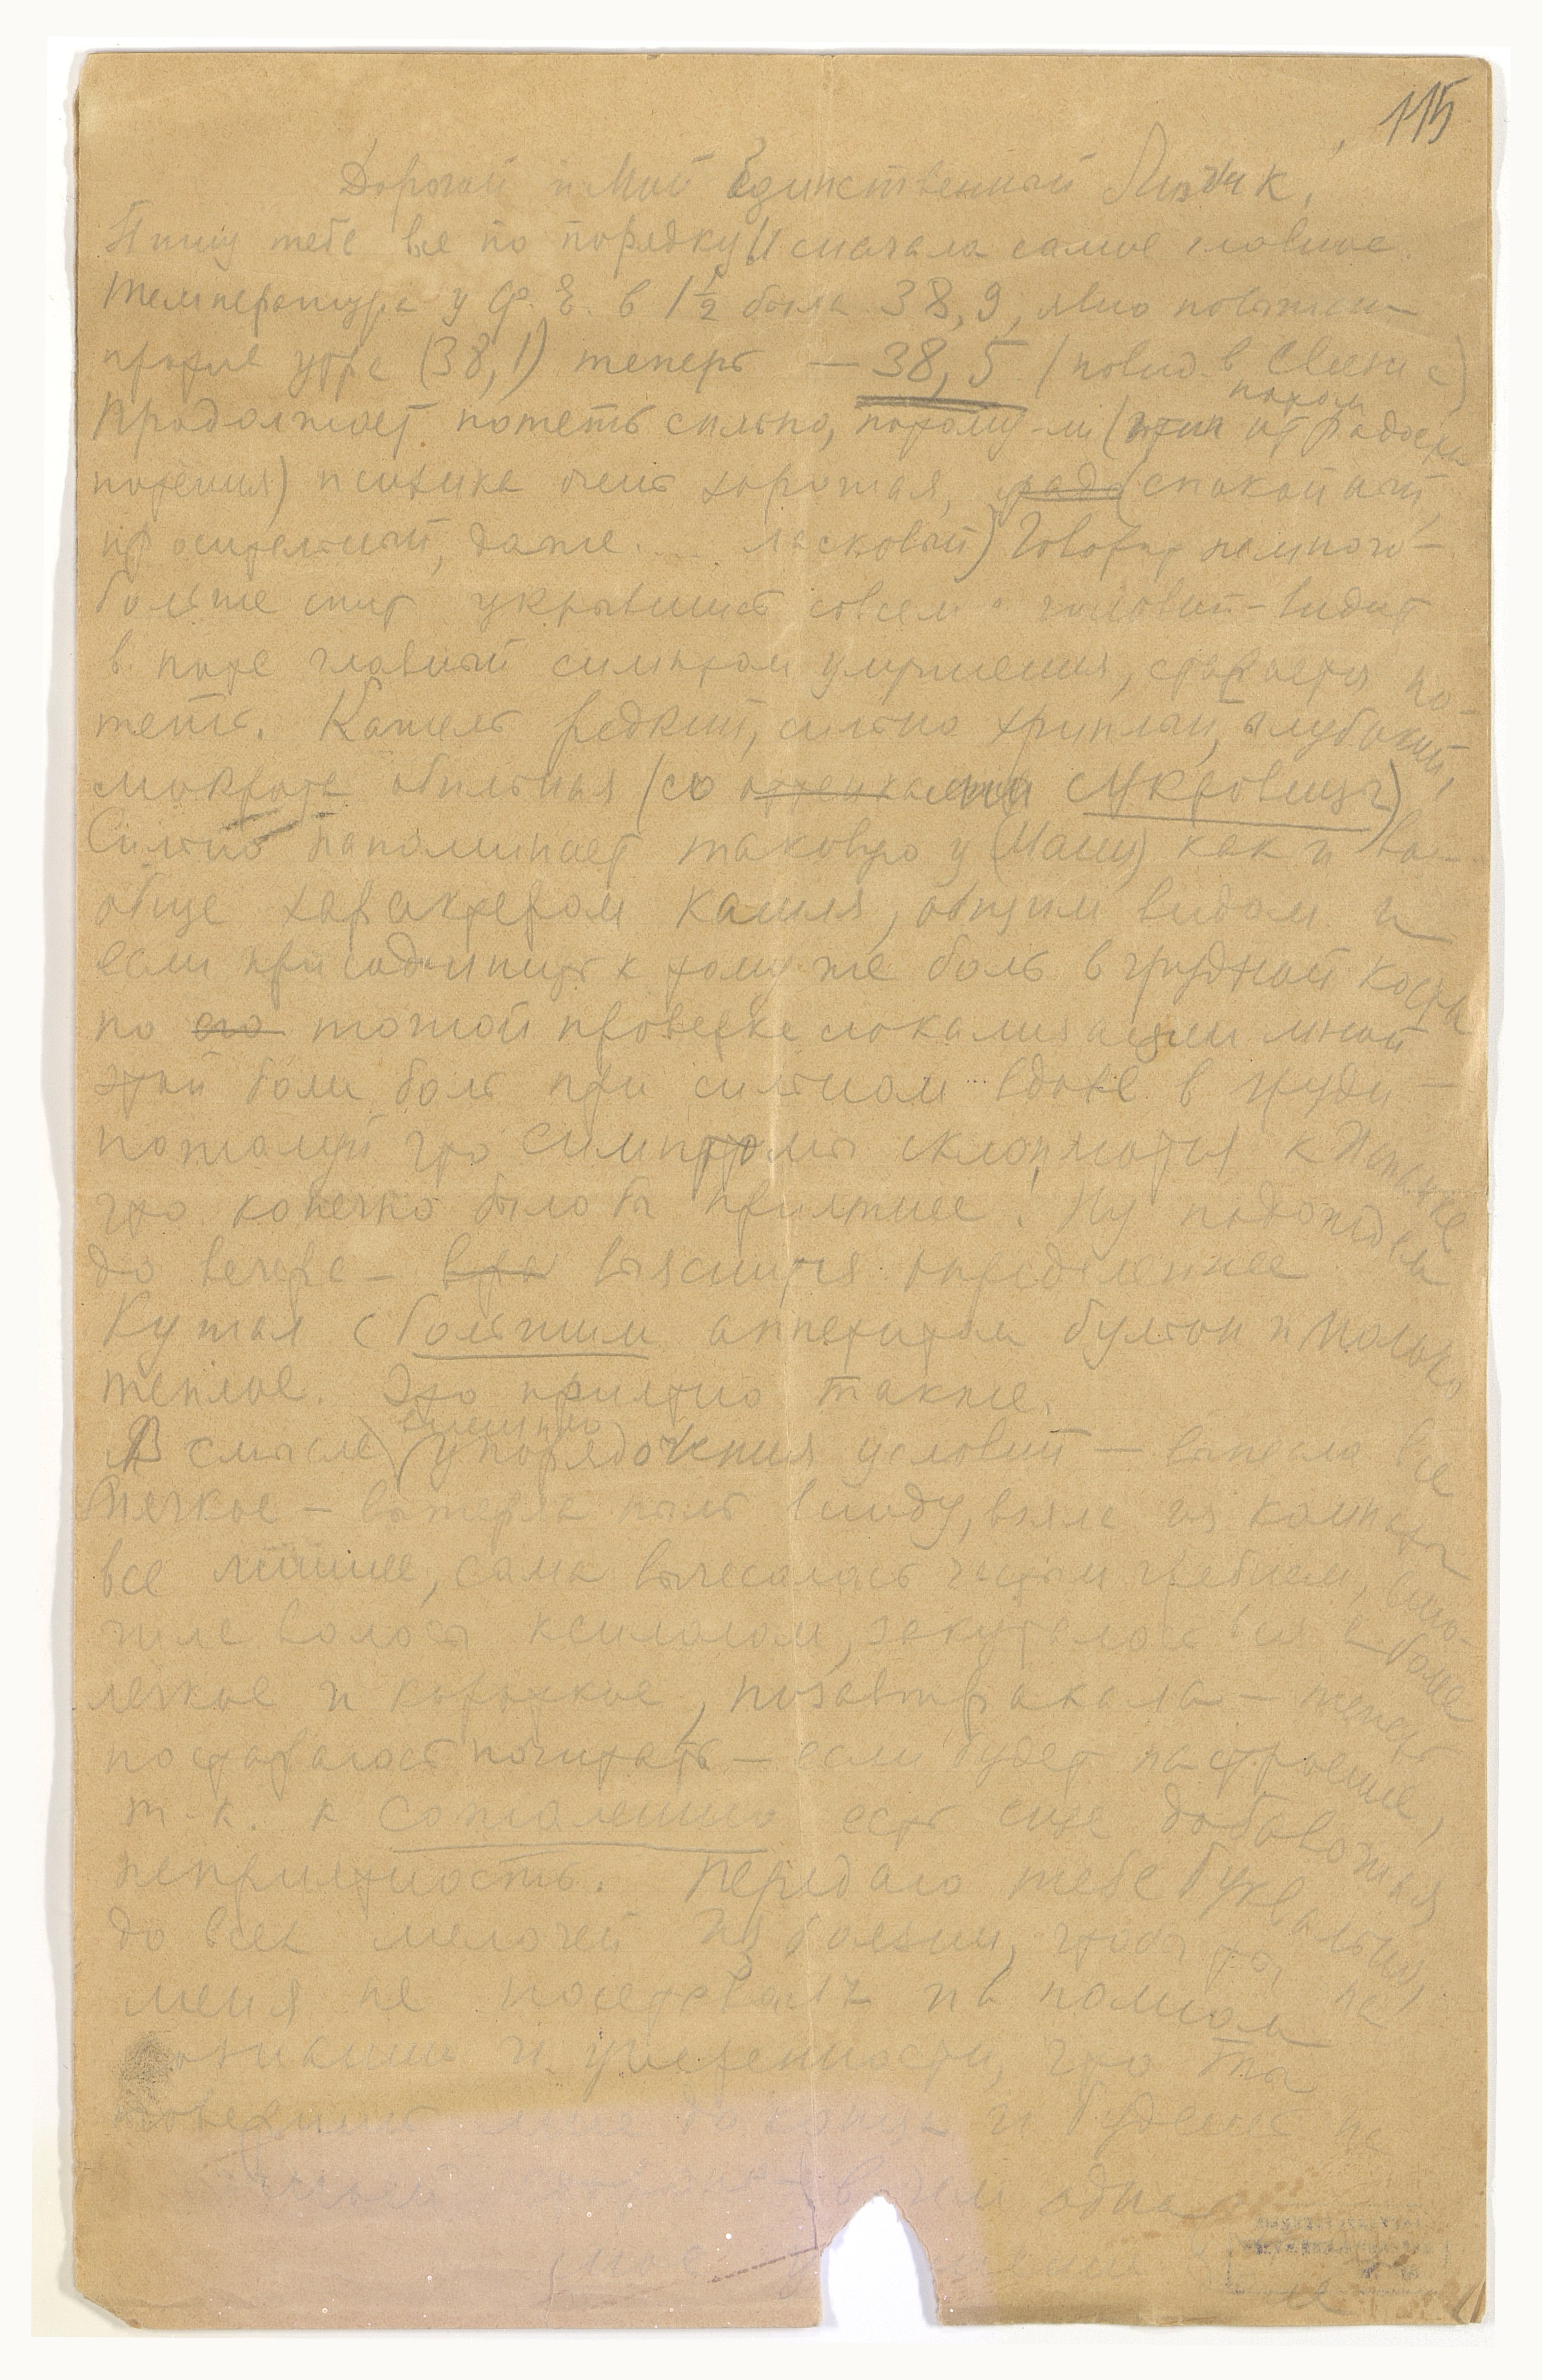 115
Дорогой и Мой Единственный
Пишу тебе все по порядку и сначала самое главное.
Температура у Ф. Е. в 1 1/2 была 38,9, явно повышен-
против утра (38,1) теперь — 38,5 (повид. в связи с
потом
Продолжает потеть сильно, потому-ли ( от радости
потения) психика очень хорошая, рад (спокойный,
даже ... ласковый) Говорит немного —
больше спит укрывшись совсем с головой - видит
в поте главный симптом улучшения, старается по-
теть. Кашель редкий, сильно хриплый, глубокий,
мокрота обильная (со оттенками сукровицы)
Сильно напоминает таковую у (Маши) как и во-
обще характером кашля, общим видом и
если присоединить к тому же боль в грудной кости
по его точной проверке локализации мной
этой боли боль при сильном вдохе в груди —
пожалуй что симптомы склоняются к Испанке
что конечно было бы приятнее. Ну подождем
до вечера — выяснится определеннее
Кушал с большим аппетитом бульон и молоко
теплое. Это приятно также.
В смысле упорядочения условий — вынесла все
мягкое — вытерла пыль всюду, взяла из комнаты
все лишнее, сама вычесалась частым гребнем,
волосы ксилолом, закуталась вся в более
легкое и короткое, позавтракала — теперь
постараюсь почитать — если будет настроение,
т.к. к сожалению есть еще добавочная
неприятность. Передаю тебе буквально,
до всех мелочей из боязни, чтобы ты не
меня не на полном
и уверенности, что ты
мне до конца и будешь не
в чем одна